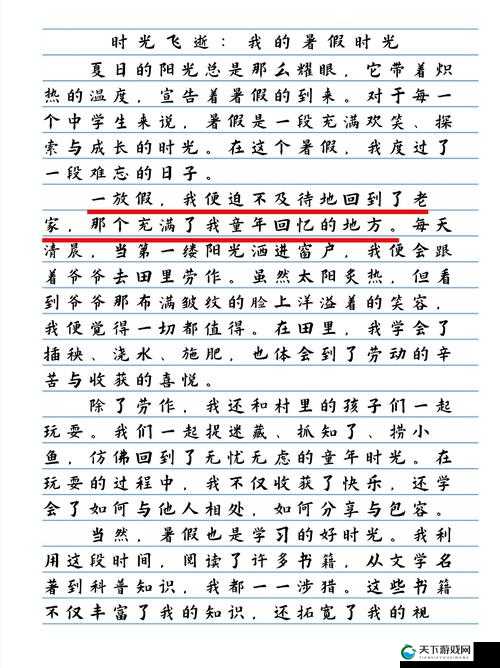 时光飞逝：我的暑假时光
夏日的阳光总是那么耀眼，它带着炽
热的温度，宣告着暑假的到来。对于每一
个中学生来说，暑假是一段充满欢笑、探
索与成长的时光。在这个暑假，我度过了
一段难忘的日子。
一放假，我便迫不及待地回到了老
家，那个充满了我童年回忆的地方。每天
清晨，当第一缕阳光洒进窗户，我便会跟
着爷爷去田里劳作。虽然太阳炙热，但看
到爷爷那布满皱纹的脸上洋溢着的笑容，
我便觉得一切都值得。在田里，我学会了
插秧、浇水、施肥，也体会到了劳动的辛
苦与收获的喜悦。
除了劳作，我还和村里的孩子们一起
玩耍。我们一起捉迷藏、抓知了、捞小
鱼，仿佛回到了无忧无虑的童年时光。在
玩耍的过程中，我不仅收获了快乐，还学
会了如何与他人相处，如何分享与包容。
当然，暑假也是学习的好时光。我利
用这段时间，阅读了许多书籍，从文学名
著到科普知识，我都一一涉猎。这些书籍
不仅丰富了我的知识，还拓宽了我的视
天下游戏网